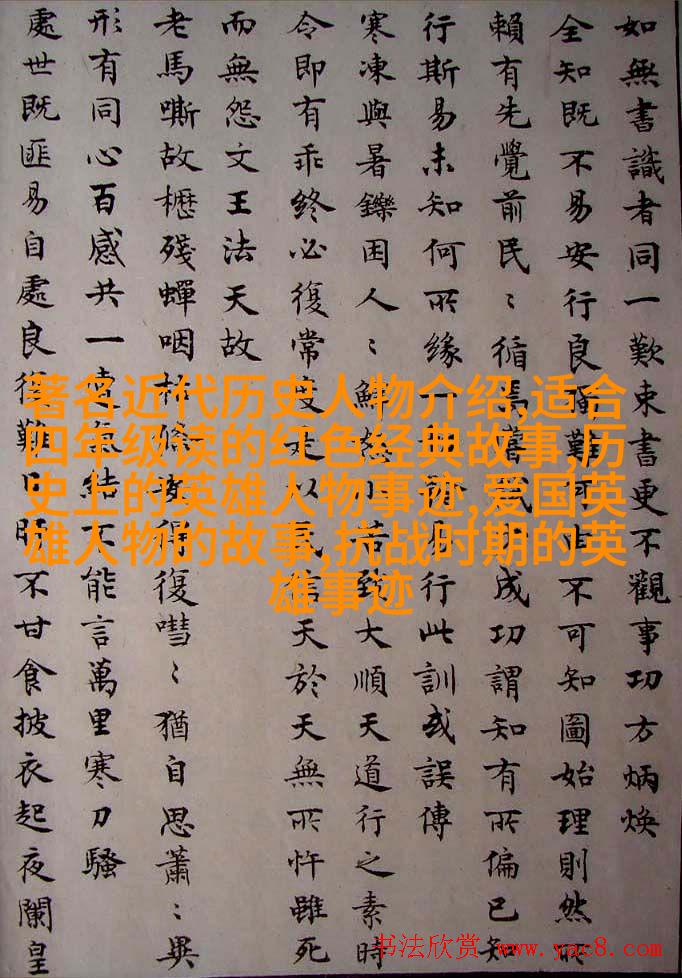 如無書識者同一歎束書更不觀事功方炳煥
全知既不易安行良獨難可由不可知圖始理則然所
賴有先覺前民〻循焉成功謂知有所偏已知
行斯易未知何所緣一易行此訓或誤傳
寒凍與暑鑠困人〻鮮致大順天道行之素時
令即有乖終必復常度是以民信天於天無所忤雖死
而無怨文王法天故
老馬嘶故櫪殘蟬咽枯條安得復嘒〻猶自思蕭〻異
形有同心百感共一遭氣結不能言萬里寒刀騷
處世既匪易自處良難時不甘食披衣起夜闌皇
著名近代历史人物介绍,适合
四年级读的红色经典故事,历
史上的英雄人物事迹,爱国英
雄人物的故事,抗战时期的英
雄事迹
书法欣赏 www.yac8.com